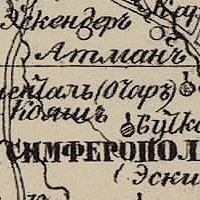 Эскендеръ
Кар
Атманъ
ентaлъ (Очаръ)
Кояшъ
Буйка
СИМФЕРОПОЛ
(Эски